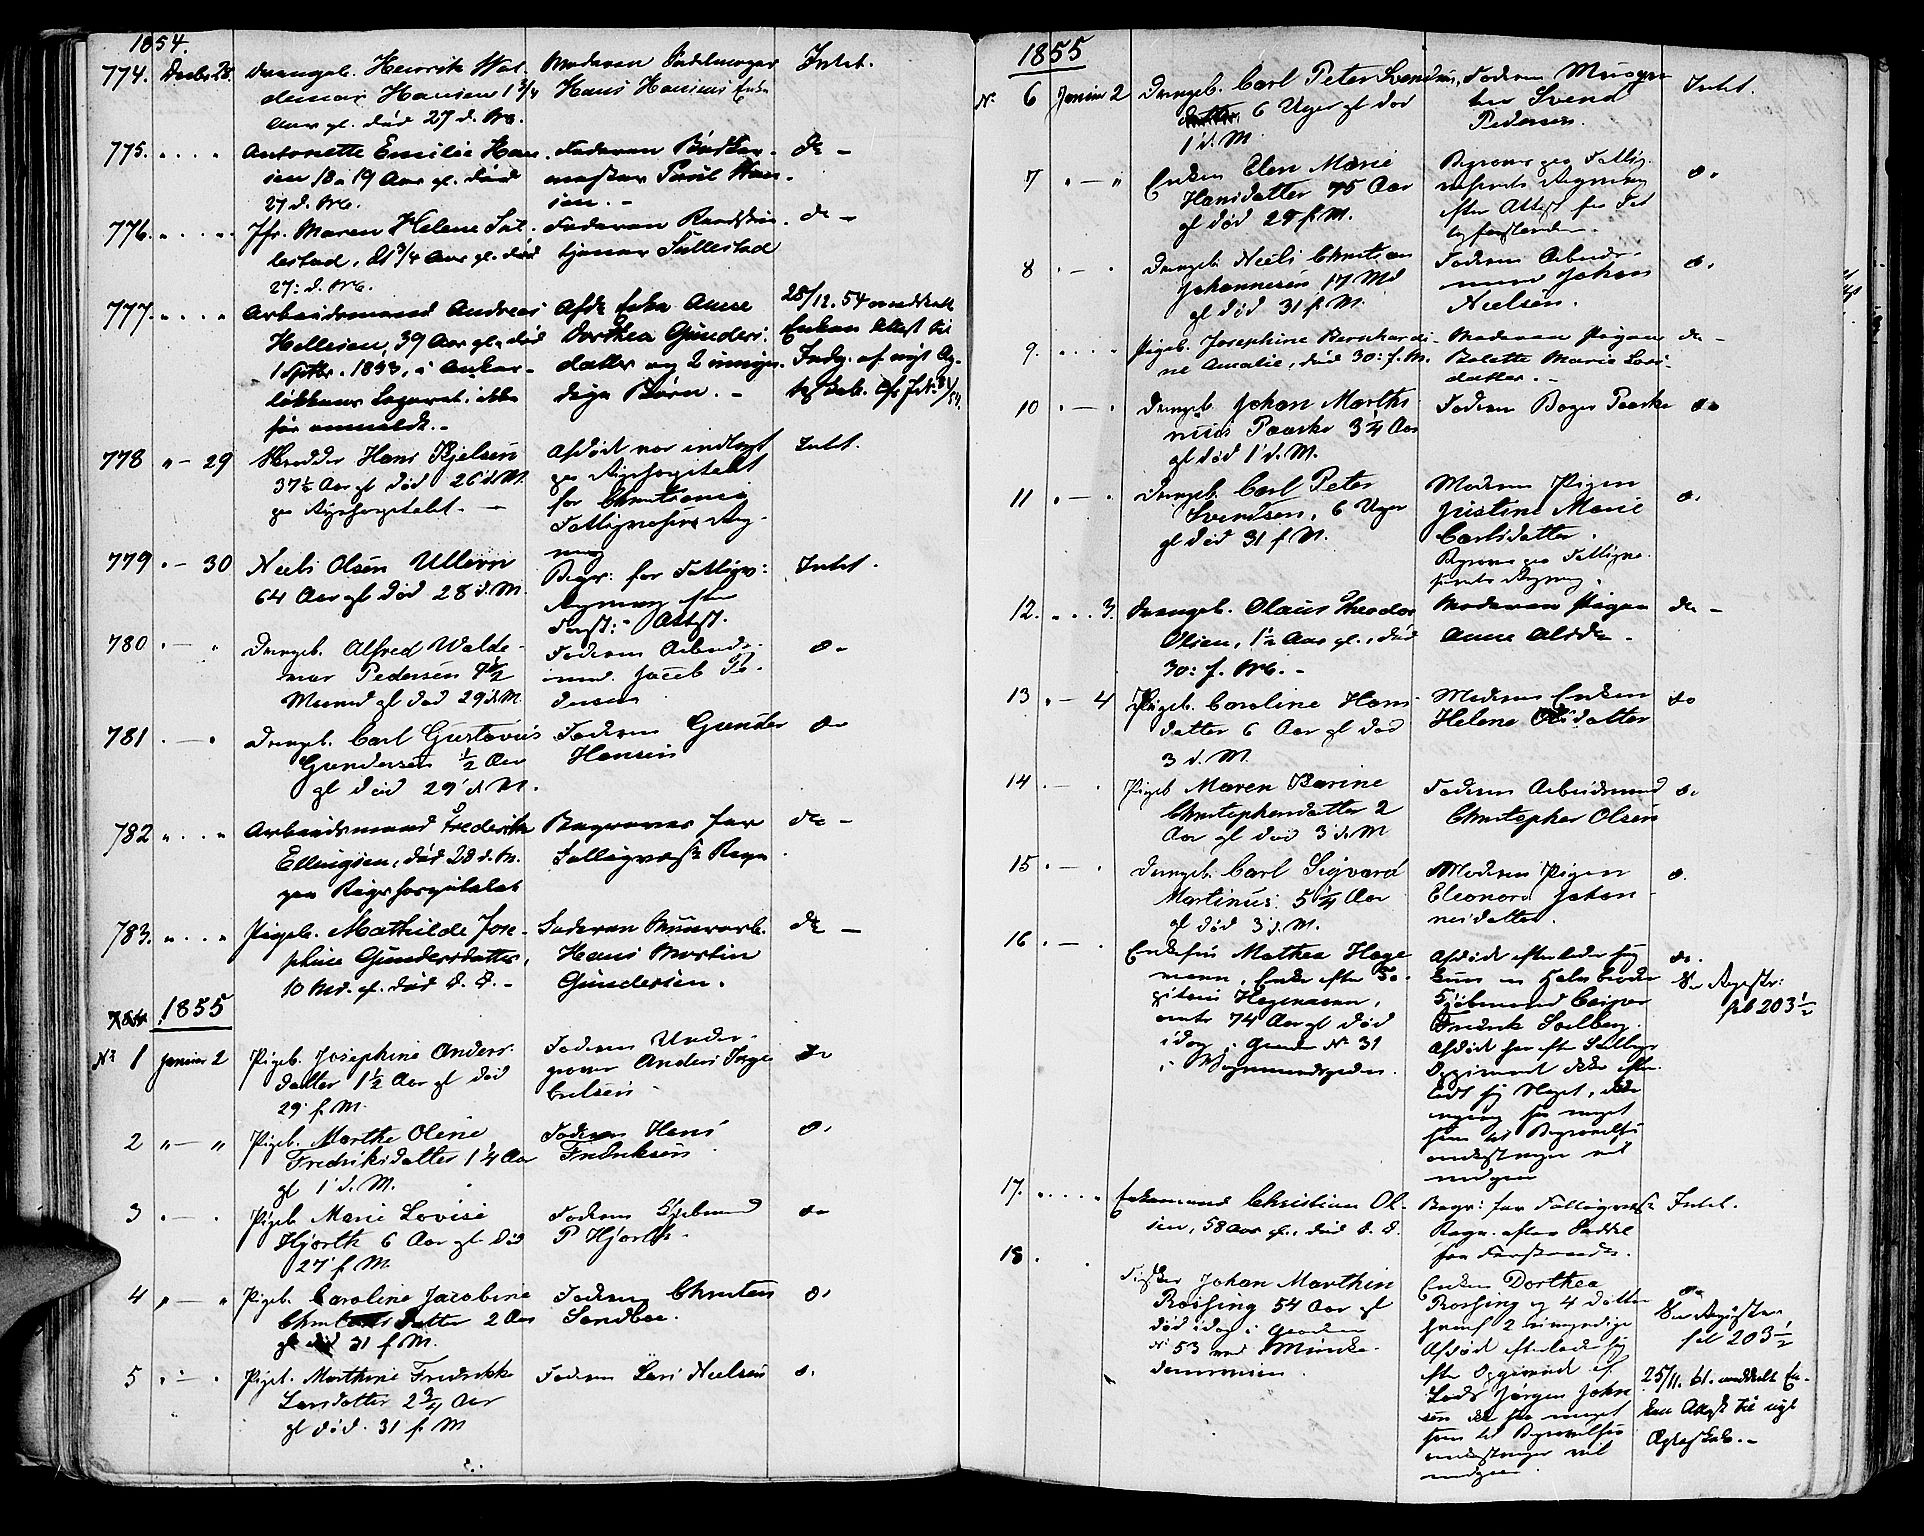 1854.
774. Decbr 28. Drengeb. Henrik Wal-
demar Hansen 1 3/4
Aar gl. død 27 d. M.
Moderen
Hans Hansens Enke
Intet.
775. Antonette Emilie Han-
sen 18 a 19 Aar gl. død
27 d. M.
Faderen Bødker-
mester Poul Han-
sen. -
do -
776. Jfr. Maren Helene Sul-
lestad, 21 3/4 Aar gl. død
27: d. M.
Faderen
tjener Sullestad
do -
777. Arbeidsmand Andreas
Hellesen, 39 Aar gl. død
1 Septbr. 1853, i Anker-
løkkens Lazaret. ikke
før anmeldt. -
Afdøs Enke Anne
Dorthea Gunders-
datter og 2 umyn-
dige Børn. -
28/12. 54 meddelt
Enken Attest til
Indg. af nyt Æg-
teskab.
778 " - 29 Skrædder Hans Kjelsen
37 1/2 Aar gl død 26' d. M.
paa Rigshospitalet. -
Afdød var indlagt
paa Rigshospitalet
for Christiania
Fattigvæsens Reg-
ning
Intet.
779 - 30 Niels Olsen Ullern
64 Aar gl død 28 d. M.
Begr: for Fattigv:
Regning efter
Forst: Attest.
Intet.
780 Drengeb. Alfred Walde-
mar Pedersen
Maaned gl død 29' d. M.
Faderen Arbeids-
mand Jacob Pe-
dersen
do
781 Drengeb. Carl Gustavus
Gundersen 1/2 Aar
gl død 29' d. M.
Faderen Gunder
Hansen
do
782 Arbeidsmand Frederik
Ellingsen, død 28 d. M.
paa Rigshospitalet
Begraves for
Fattigvæsts Regn
do -
783. Pigeb. Mathilde Jose-
phine Gundersdatter,
10 Md. gl. død d. D. -
Faderen Murarb.
Hans Martin
Gundersen.
do -
1855
No 1 Januar 2 Pigeb. Josephine Anders-
datter 1 1/2 Aar gl død
29' f. M.
Faderen Under-
Anders Inge-
bretsen
do
2 " - " Pigeb. Marthe Oline
Fredriksdatter 1 1/4 Aar
gl 1' d. M.
Faderen Hans
Fredriksen
do
3 Pigeb Marie Lovise
Hjorth 6 Aar gl død
27' f M.
Faderen
P Hjorth.
do
4 Pigeb. Caroline Jacobine
datter 2 Aar
gl død 31 f M.
Faderen Christen
Sandboe.
do
5 Pigeb. Marthine Fredrikke
Larsdatter 2 3/4 Aar
gl død. 31 f. M
Faderen Lars Nielsen
do
1855
No 6 Januar 2 Drengeb. Carl Peter Svendsen,
6 Uger gl død
1' d. M.
Faderen
Svend
Pedersen.
Intet.
7 Enken Elen Marie
Hansdatter 75 Aar
gl død 29 f. M.
Begraves paa Fattig-
væsenets Regning
efter Attest fra
do
8 Drengeb. Niels Christian
Johannesen 17 Md
gl død 31 f M.
Faderen Arbeids-
mand Johan
Nielsen.
do
9. Pigeb. Josephine Bernhardi-
ne Amalie, død 30: f. M.
Moderen Pigen
Bolette Marie Lars-
datter. -
do -
10 Drengeb. Johan Marthi-
nius Paaske 3 1/4 Aar
gl død 1' d. M.
Faderen Bager Paaske
do
11 Drengeb. Carl Peter
Svendsen, 6 Uger
gl død 31 f M.
Moderen Pigen
Justine Marie
Carlsdatter.
Begraves paa Fattigvæ-
senets Regning.
do
12. 3. Drengeb. Olaus Theodor
Olsen, 1 1/2 Aar gl., død
30: f. M. -
Moderen Pigen
Anne
do -
13 - 4 Pigeb. Caroline Hans-
datter 6 Aar gl død
3 d. M.
Moderen Enken
Helene Olsdatter
do
14 Pigeb Maren Karine
Christophersdatter 2
Aar gl død 3' d. M
Faderen Arbeidsmand
Christopher Olsen
do
15 Drengeb. Carl Sigvard
Martinus. 5 1/4 Aar
gl død 3' d. M.
Moderen Pigen
Eleonora Johan-
nesdatter.
do
16 Enkefru Mathea Hage-
mann, Enke efter Ca-
pitain Hagemann,
omtr 74 Aar gl død
idag i Gaarden No 31
i Vognmandsgaden.
Afdøde efterlader sig
kun en Halvbroder
Kjøbmand Casper
Fredrik Solberg.
Afdøde har efter Solbergs
Opgivende ikke efter-
ladt sig Noget, ikke
engang saa meget
som til Begravelses
omkostninger vil
medgaae
do.
Se Registr:
fol 203 1/2
17. Enkemand Christian Ol-
sen, 58 Aar gl., død d. D.
Begr: for Fattigvæsts
Regn. efter Seddel
fra Forstanderen.
Intet.
18. Fisker Johan Marthin
Rossing 54 Aar gl
død idag i Gaarden
No 53 ved Munke-
dammen.
Enken Dorthea
Rossing og 4 Døttre
hvoraf 2 umyndige
Afdød efterlader sig
efter Opgivende af
Lods Jørgen John-
sen ikke saa meget
som til Begravelses
omkostninger vil
medgaae.
do
Se Registr.
fol 203 1/2
25/11. 61. meddelt En-
ken Attest til nyt
Ægteskab. -